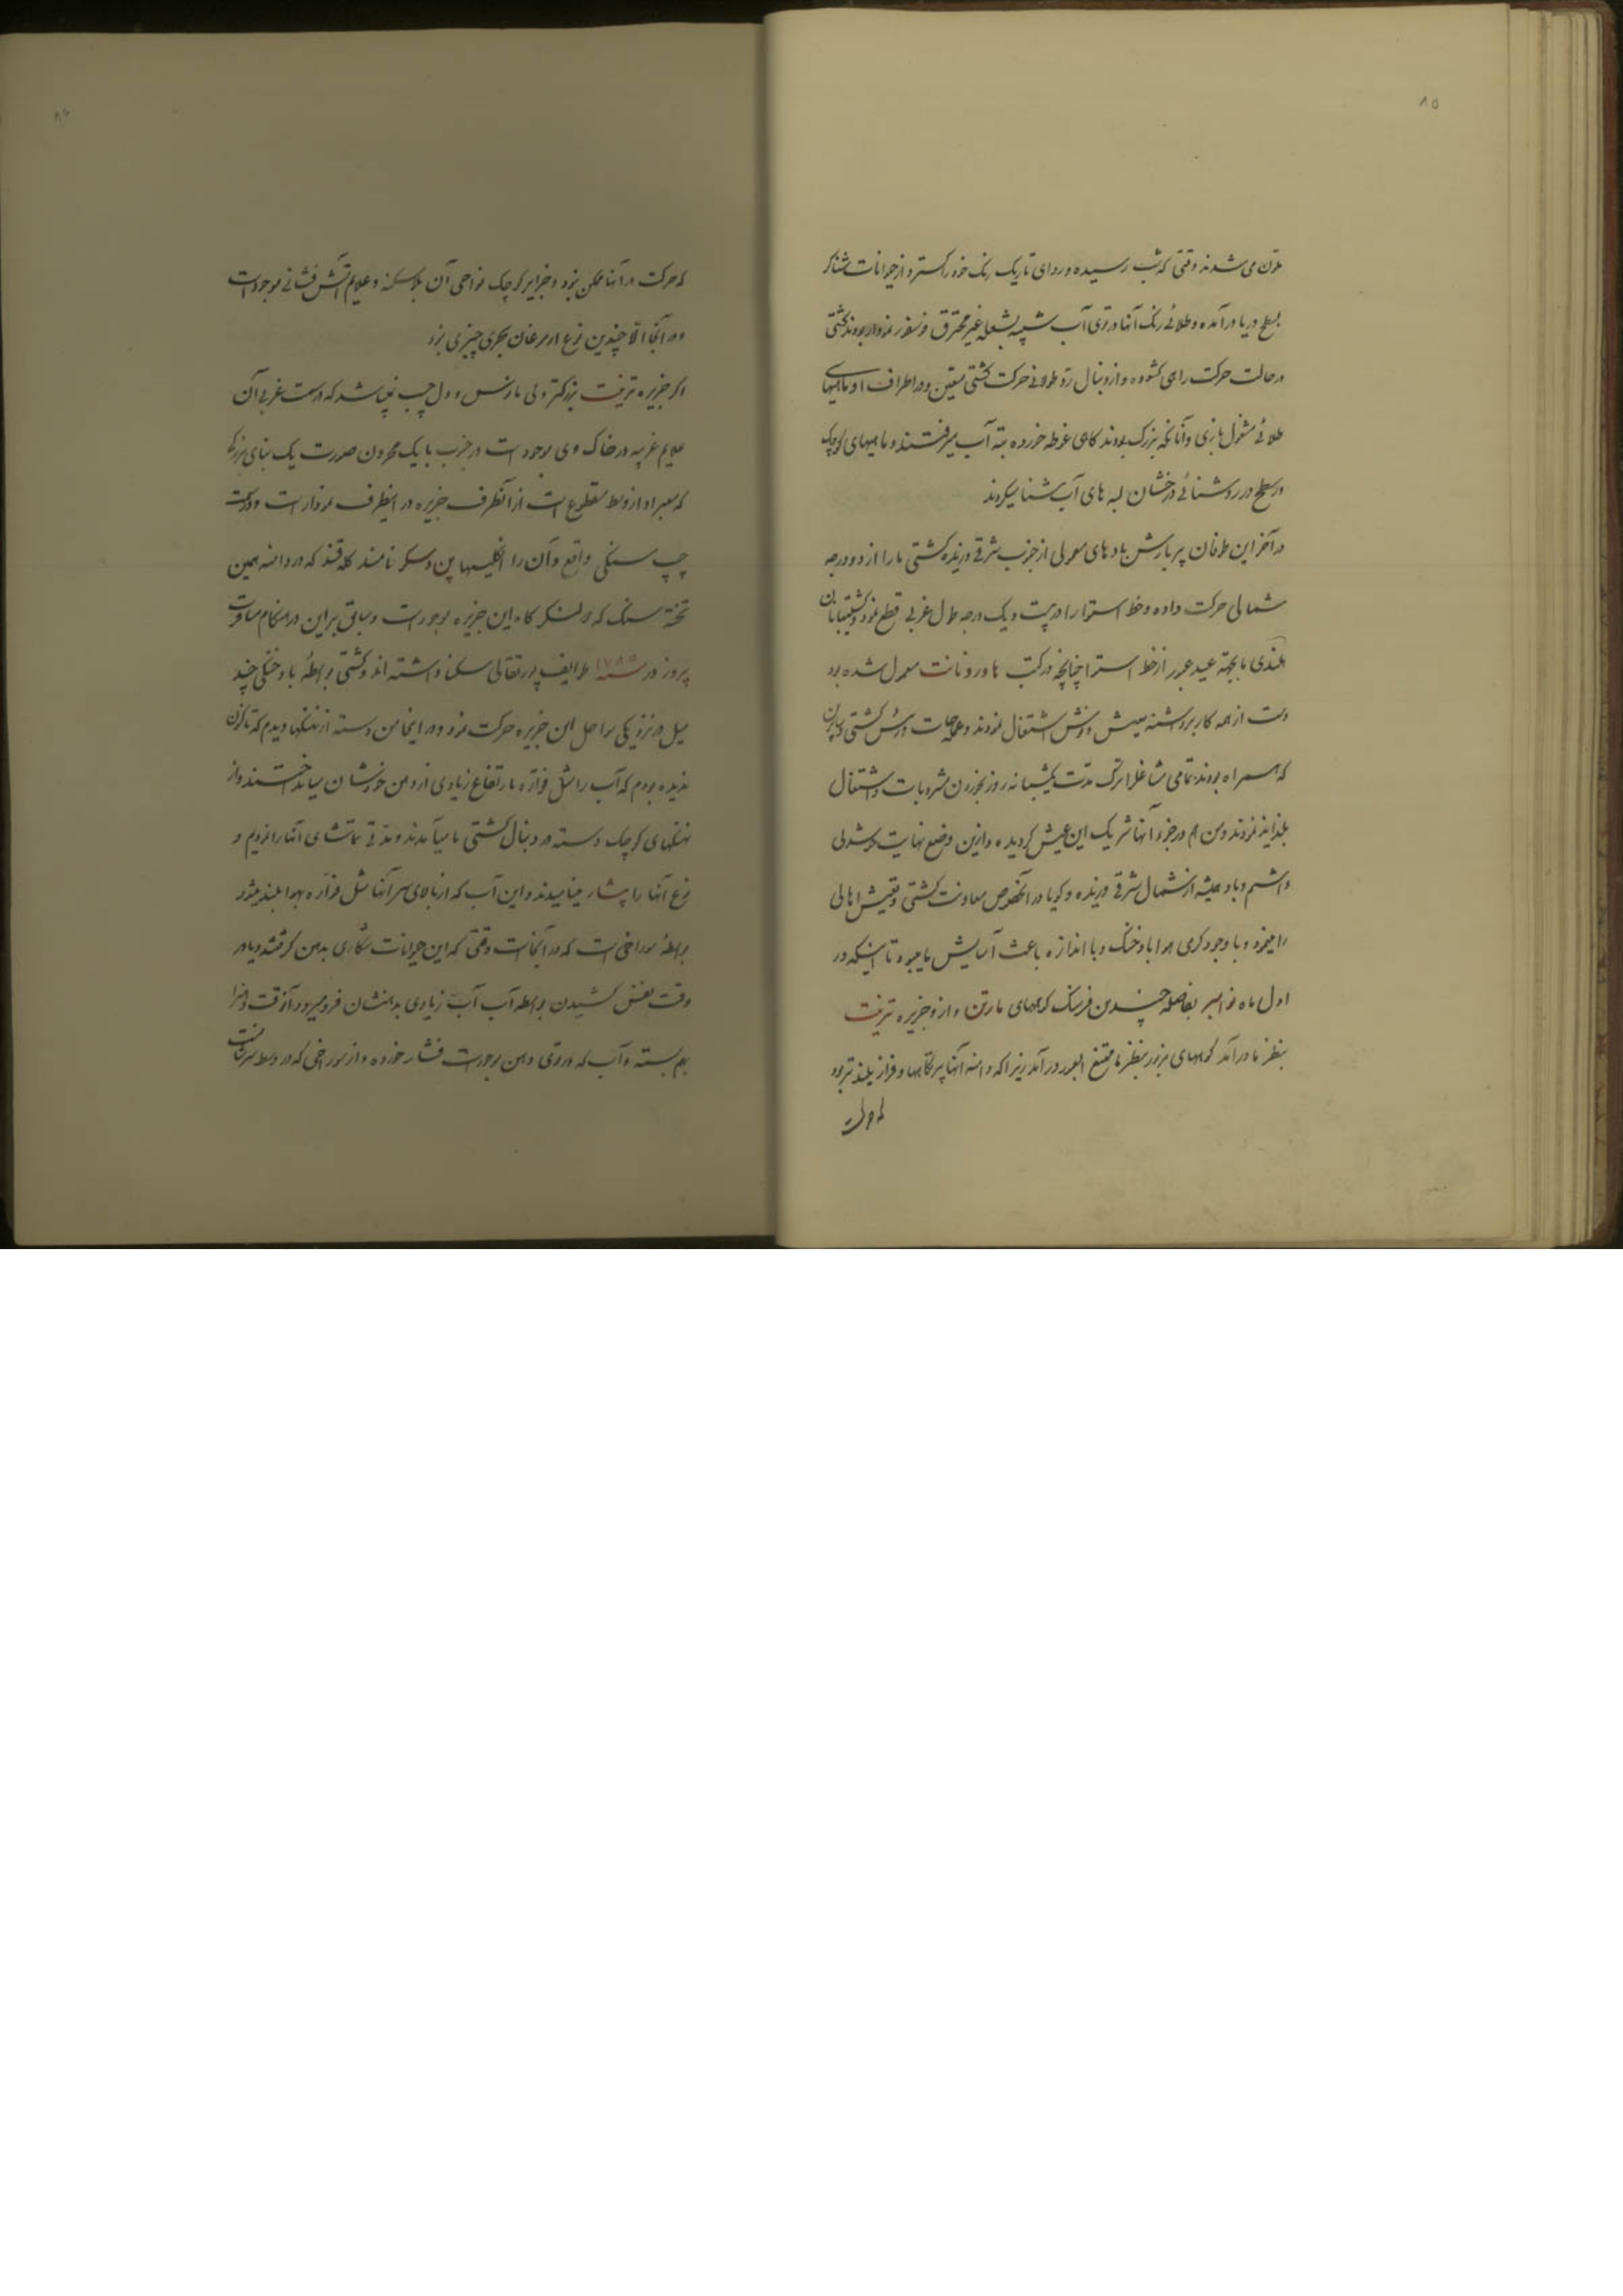 ۸۵
ملون می شدند وقتی که شب رسیده و ردای تاریک رنگ خود را گسترد از حیوانات شناگر
بسطح دریا درآمده و طلائی رنگ آنها در توی آب شبیه بشعله غیر محترق فسفر نمودار بودند کشتی
در حالت حرکت راهی گشوده و از دنبال رد طولانی حرکت کشتی متعین و در اطراف او ماهیهای
طلائی مشغول بازی و آنانکه بزرگ بودند گاهی غوطه خورده به ته آب میرفتند و ماهیهای کوچک
در سطح در روشنائی درخشان لبه های آب شنا میکردند
در آخر این طوفان پر بارش بادهای معمولی از جنوب شرقی وزیده کشتی ما را از دو درجه
شمالی حرکت داده و خط استوا را در بیست و یک درجه طول غربی قطع نمود و کشتیبانان
هلندی ما بجهة عید عبور از خط استوا چنانچه در کتب ماورونانت معمول شده بود
دست از همه کار برداشته بعیش و نوش اشتغال نمودند و عمله جات و رئیس کشتی و سایرین
که همراه بودند تمامی مشاغل را ترک مدت یکشبانه روز بخوردن مشروبات و اشتغال
بلذایذ نمودند و من هم در جزء آنها شریک این عیش گردیده و از این وضع نهایت خوشدلی
داشتم و باد همیشه از شمال شرقی وزیده و گویا در آنخصوص معاونت کشتی و تعیش اهالی
را مینمود و با وجود گرمی هوا باد خنک و با اندازه باعث آسایش ما میبود تا اینکه در
اول ماه نوامبر بفاصله چندین فرسنگ کوههای مارتن واز و جزیره ترینت
بنظر ما درآمد کوههای مزبور بنظر ما ممتنع العبور درآمد زیرا که دامنه آنها پرتگاهها و فراز بلندتر بود
که حرکت
۸۶
که حرکت در آنها ممکن نبود و جزایر کوچک نواحی آن بلاسکنه و علایم آتش فشانی موجود است
و در آنجا الا چندین نوع از مرغان بحری چیزی نبود
اگر جزیره ترینت بزرگتر ولی مأنوس و دلچسب نمیباشد که در سمت غربی آن
علایم غریبه در خاک وی موجود است در جنوب با یک مخروط صورت یک بنای بزرگ
که معبر او از وسط مقطوع است از آنطرف جزیره در اینطرف نمودار است و در سمت
چپ سنگی واقع و آن را انگلیسها پن دسکر نامند کله قند که در دامنه همین
تخته سنگ که در لنگرگاه این جزیره موجود است و سابق بر این در هنگام مسافرت
پروز در سنه ۱۷۸۵ طوایف پورتقالی سکنا داشته اند و کشتی بواسطهٔ باد خنکی چند
میل در نزدیکی سواحل این جزیره حرکت نمود و در اینجا من دسته از نهنگها دیدم که تا کنون
ندیده بودم که آب را مثل فواره بارتفاع زیادی از دهن خودشان میانداختند و از
نهنگهای کوچک دسته در دنبال کشتی ما میآمدند و مدتی تماشای آنها را نمودم و
نوع آنها را پشار مینامیدند و این آب که از بالای سر آنها مثل فواره بهوا بلند میشود
بواسطهٔ سوراخی است که در آنجاست وقتی که این حیوانات شکاری بدهن گرفتند و یا در
وقت نفس کشیدن بواسطه آب آب زیادی بدهنشان فرو میرود آنوقت دهنرا
بهم بسته و آب که در توی دهن موجود است فشار خورده و از سوراخی که در وسط سرشانست